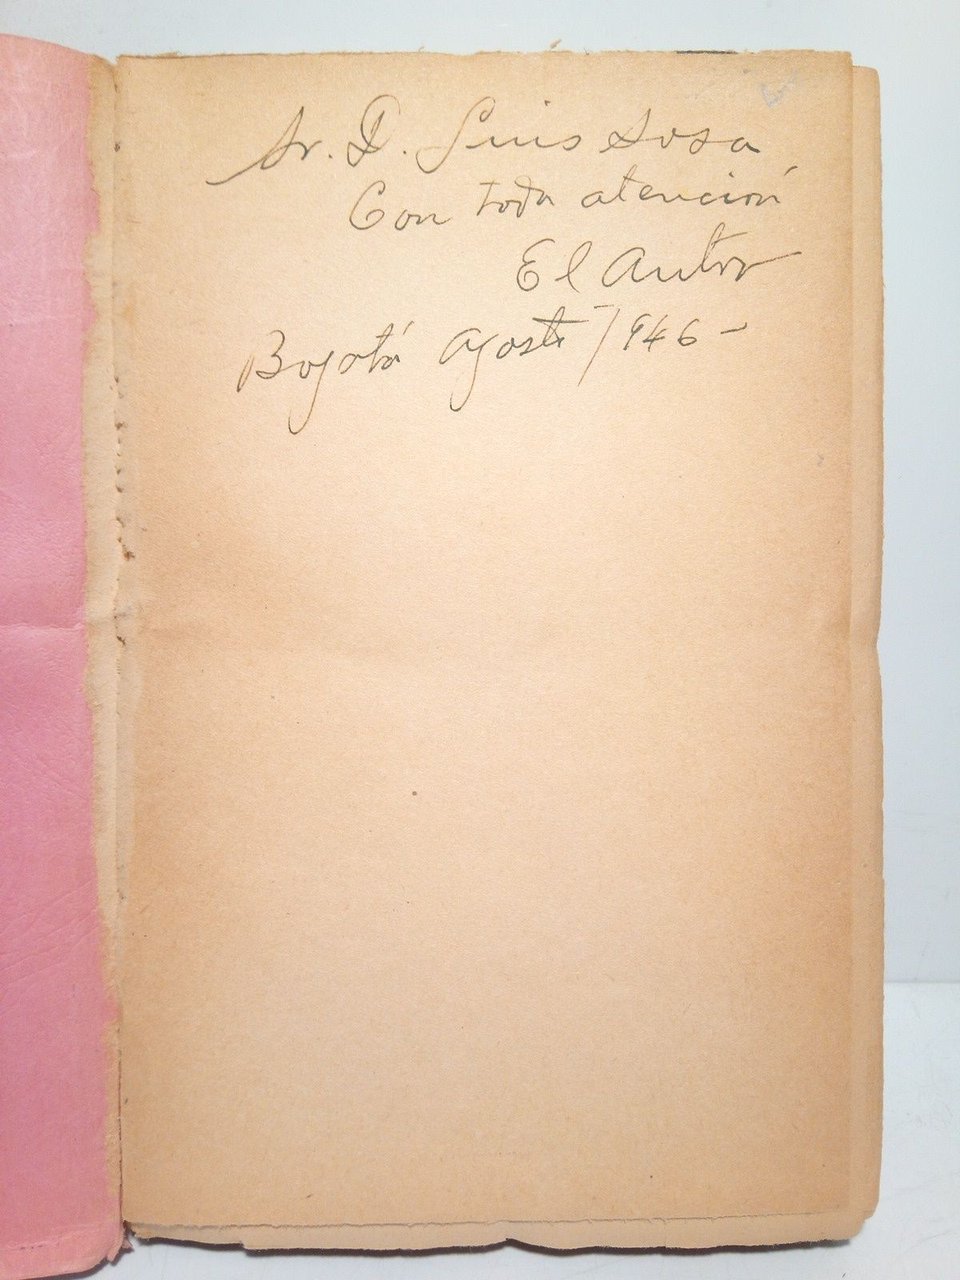 Sr. D. Luis Sosa
Con toda atención
El Autor
Bogotá Agosto/1946-